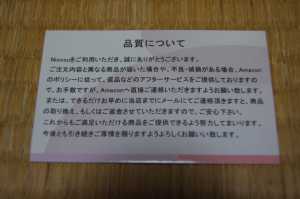 品質について
Nosouをご利用いただき、誠にありがとうございます。
ご注文内容と異なる商品が届いた場合や、不良・破損がある場合、Amazon
のポリシーに従って、返品などのアフターサービスをご提供しておりますの
で、お手数ですが、Amazonへ直接ご連絡いただきますようお願い致します。
または、できるだけお早めに当店までにメールにてご連絡頂きますと、商品
の取り換え、もしくはご返金させていただきますので、ご安心下さい。
これからもご満足いただける商品をご提供できるよう努力してまいります。
今後とも引き続きご厚情を賜りますようよろしくお願い致します。